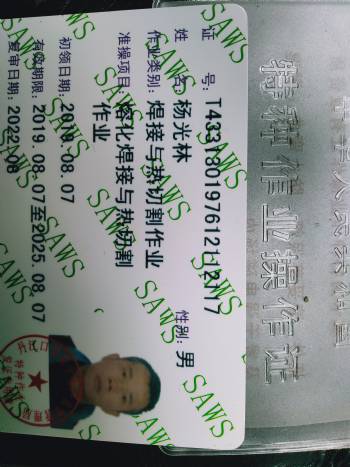 中华人民共和国
特种作业操作证
证 号: T433180197612112117
姓 名: 杨光林
性别: 男
作业类别: 焊接与热切割作业
准操项目: 熔化焊接与热切割
作业
初领日期: 2019.08.07
有效期限: 2019.08.07至2025.08.07
复审日期: 2022.08
SAWS
SAWS
SAWS
SAWS
SAWS
SAWS
SAWS
SAWS
SAWS
SAWS